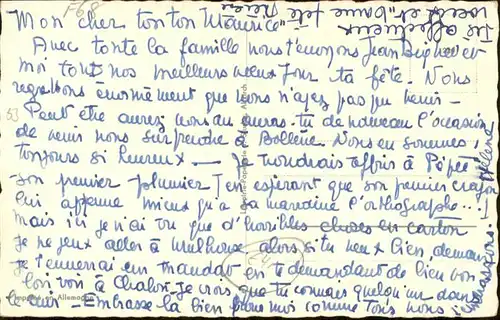 Mon cher tonton Maurice
Avec toute la famille nous t'envoyons Jean
moi tout nos meilleurs vœux pour ta fête. Nous
regrettons énormément que vous n'ayez pas pu venir -
Peut être aurez vous au auras-tu de nouveau l'occasion
de venir nous surprendre à Bollène. Nous en sommes
toujours si heureux - Je voudrais offrir à Pépée
son premier plumier en espérant que son premier crayon
lui apprenne mieux qu'à sa marraine l'orthographe...
mais ici je n'ai vu que d'horribles choses en carton
Je ne peux aller à Mulhouse alors si tu veux bien,
Je t'enverrai un mandat en te demandant de bien
voir à Chalon. Je crois que tu connais quelqu'un dans
le cuir - Embrasse la bien pour moi comme tous nous
Imprimé en Allemagne